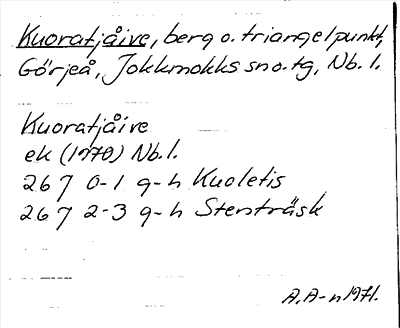 Kuoratjåive, berg o. triangelpunkt,
Görjeå, Jokkmokks sn o. tg, Nb. l.
Kuoratjåive
ek (1970) Nb. l.
267 0-1 g-h Kuoletis
267 2-3 g-h Stenträsk
A. A-n 1971.